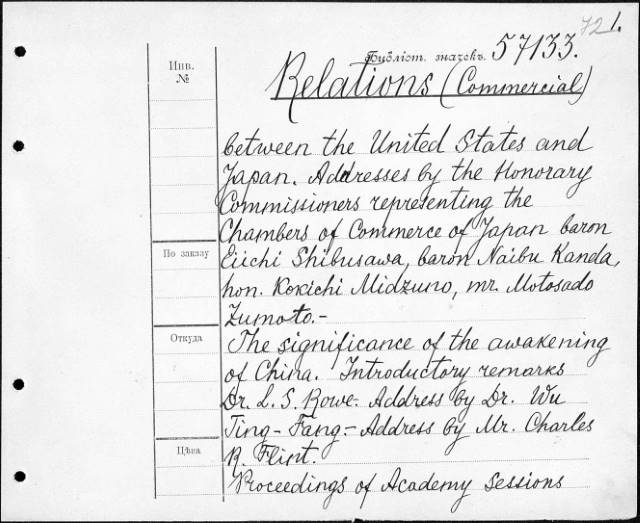 72 1.
Библіот. значекъ. 57133.
Инв.
№
Relations (Commercial)
between the United States and
Japan. Addresses by the Honorary
Commissioners representing the
Chambers of Commerce of Japan baron
По заказу
Eiichi Shibusawa, baron Naibu Kanda,
hon. Kokichi Midzuno, mr. Motosado
Zumoto.-
Откуда
The significance of the awakening
of China. Introductory remarks
Dr. L. S. Rowe.- Address by Dr. Wu
Ting-Fang.- Address by Mr. Charles
Цѣна
R. Flint.
Proceedings of Academy sessions